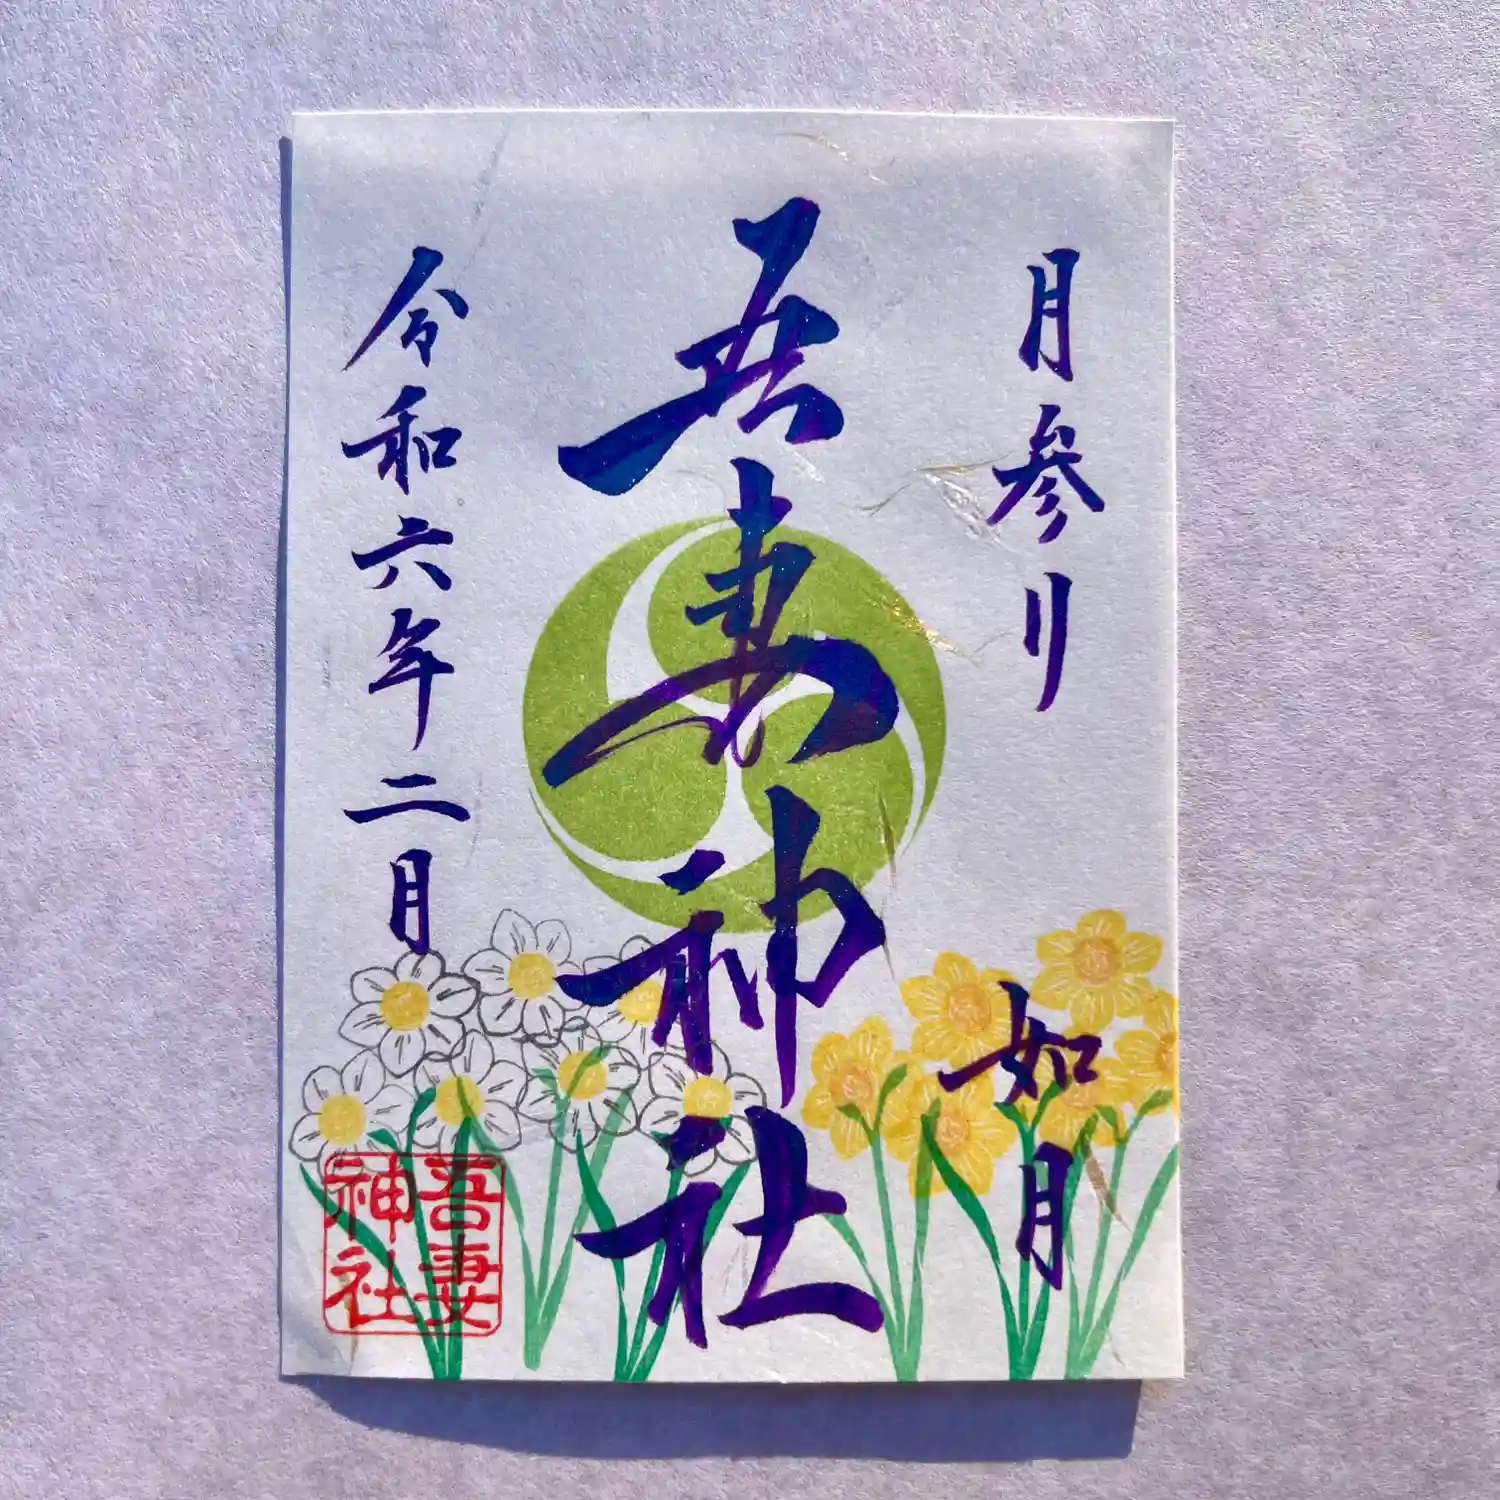 月参り
如月
吾妻神社
令和六年二月
吾妻
神社